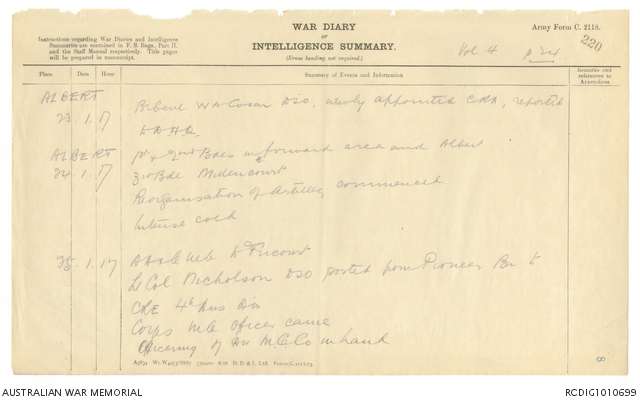 WAR DIARY
or
INTELLIGENCE SUMMARY.
(Erase heading not required.)
Army Form C. 2118.
Instructions regarding War Diaries and Intelligence
Summaries are contained in F. S. Regs., Part II.
and the Staff Manual respectively. Title pages
will be prepared in manuscript.
Vol 4
220
Place
Date
Hour
Summary of Events and Information
Remarks and
references to
Appendices
ALBERT
23.1.17
W A Coxen DSO, newly appointed CRA, reported
DHQ
ALBERT
24.1.17
1st & 2nd Bdes in forward area and Albert
3rd Bde
Reorganisation of Artillery commenced
Intense cold
25.1.17
Fricourt
Lt Col Nicholson DSO posted from Pioneer Bn to
CRE 4th Aus Div
Corps MG Officer came
Officering of Div M.G. Co in hand
8
AUSTRALIAN WAR MEMORIAL
RCDIG1010699